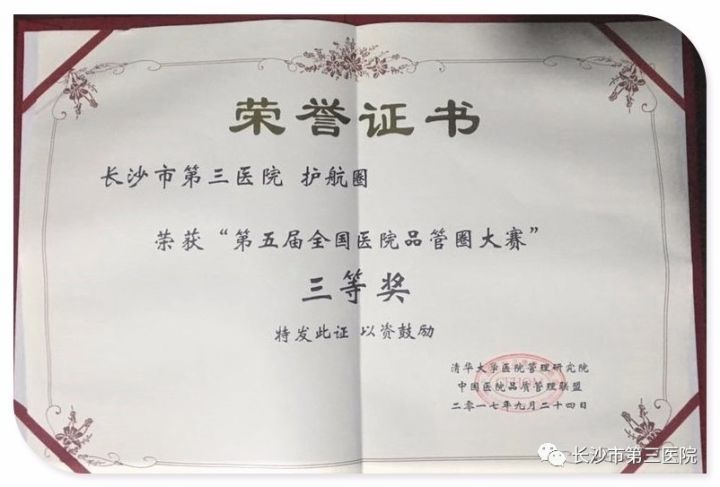 荣誉证书
长沙市第三医院 护航圈
荣获“第五届全国医院品管圈大赛”
三等奖
特发此证 以资鼓励
清华大学医院管理研究院
中国医院品质管理联盟
二零一七年九月二十四日
长沙市第三医院